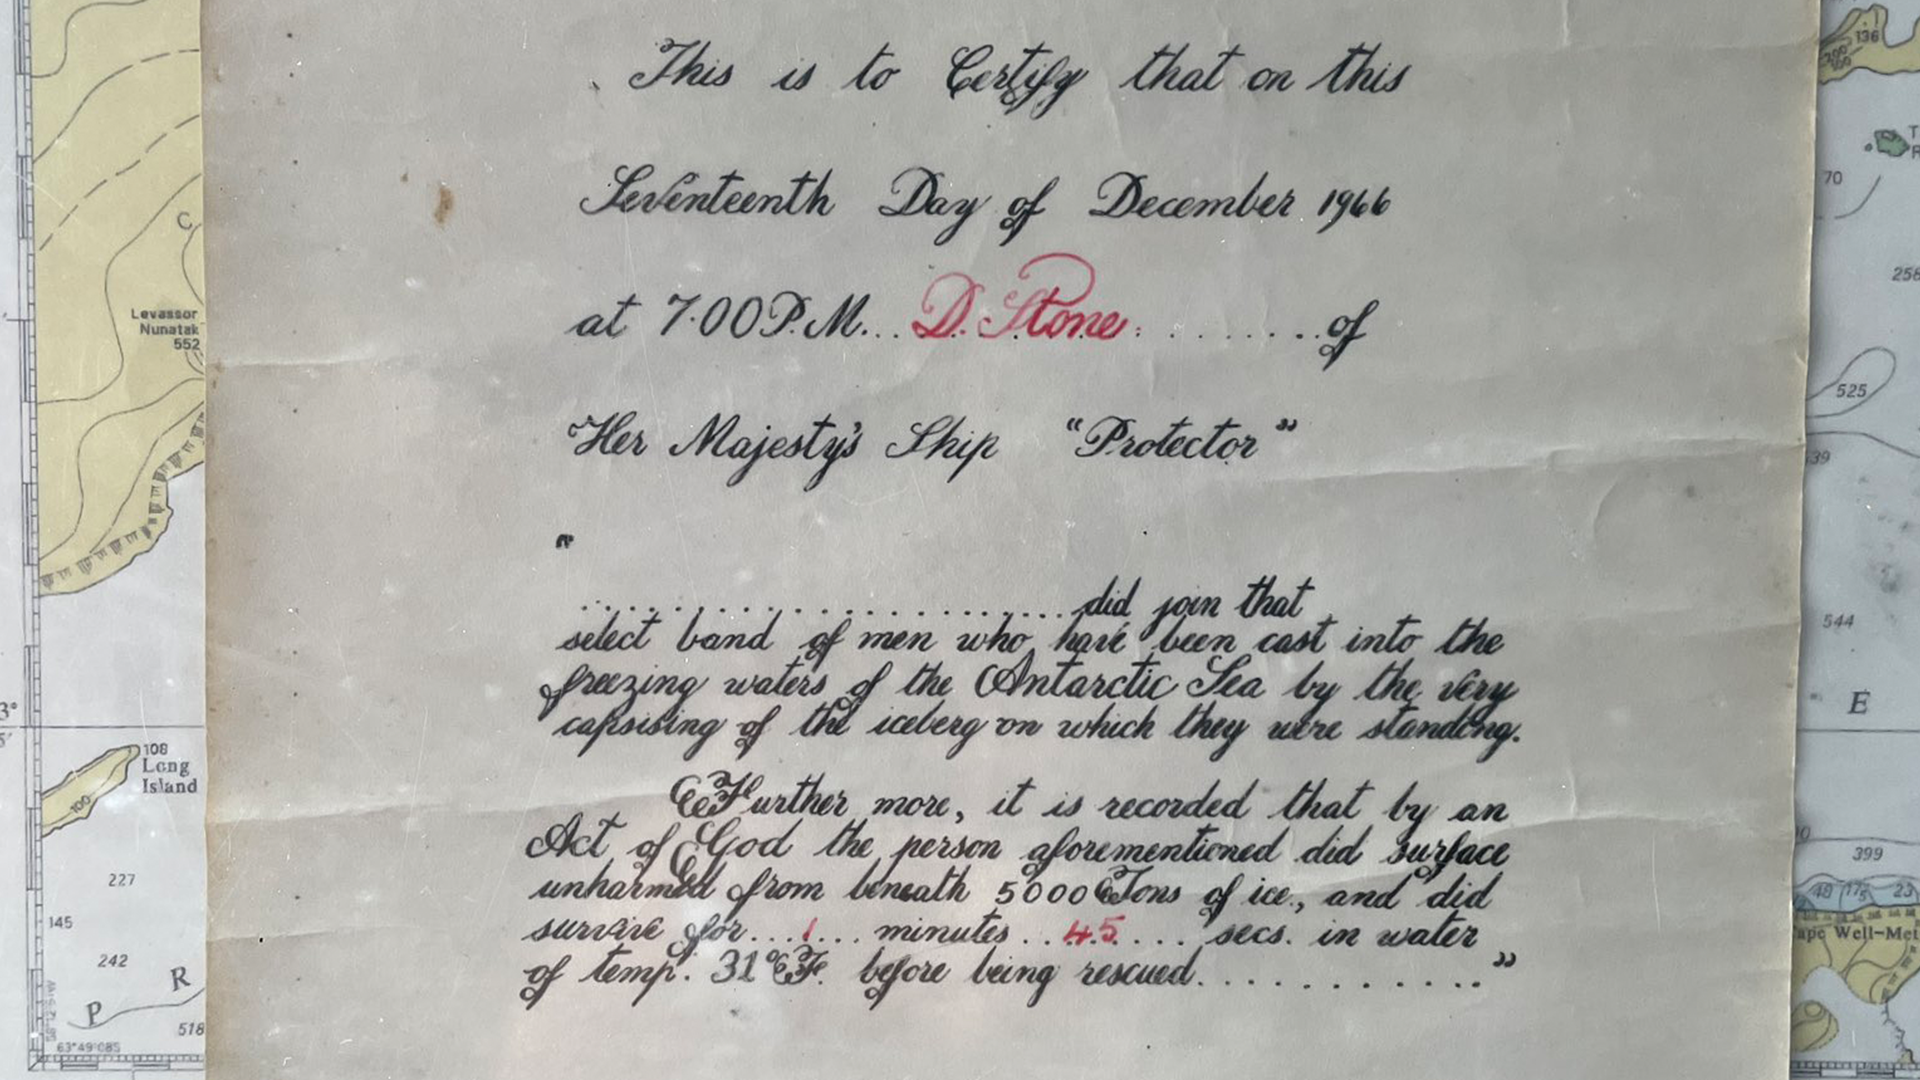 This is to Certify that on this
Seventeenth Day of December 1966
at 7.00 P.M... D. Stone. . . . . . . . of
Her Majesty's Ship "Protector"
"
. . . . . . . . . . . . . . . . . . . . . . . . . . did join that
select band of men who have been cast into the
freezing waters of the Antarctic Sea by the very
capsising of the iceberg on which they were standing.
Further more, it is recorded that by an
Act of God the person aforementioned did surface
unharmed from beneath 5000 Tons of ice, and did
survive for...1... minutes...45.... secs. in water
of temp. 31°F. before being rescued. . . . . . . . . . . . "
C
Levassor
Nunatak
552
108
Long
Island
100
227
145
242
P R
518
63°49'085
136
70
258
525
39
544
E
399
48 175 23
Well-Met